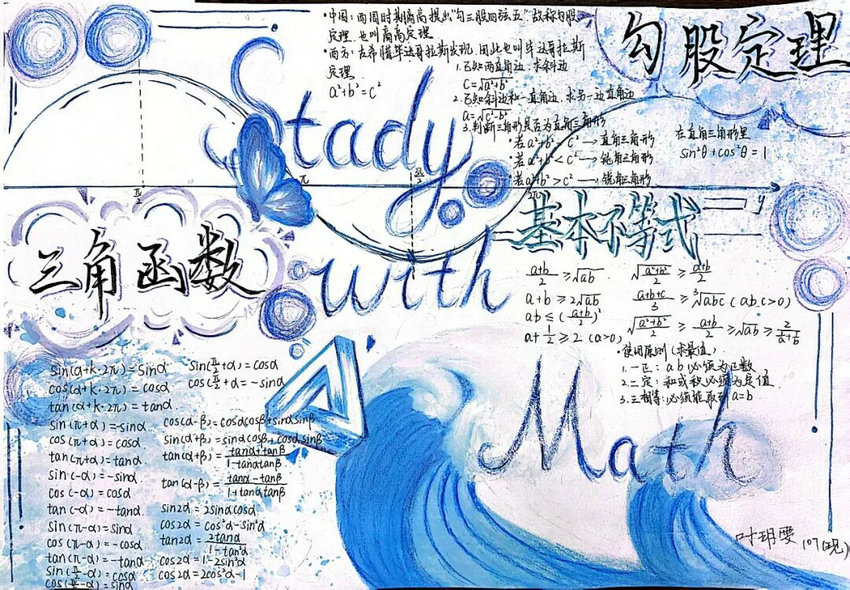 •中国：西周时期商高提出“勾三股四弦五”故称勾股
定理，也叫商高定理
•西方：古希腊毕达哥拉斯发现，因此也叫毕达哥拉斯
定理
a²+b²=c²
勾股定理
1.已知两直角边，求斜边
c=√a²+b²
2.已知斜边和一直角边，求另一边直角边
a=√c²-b²
3.判断三角形是否为直角三角形
•若a²+b² c² → 直角三角形
•若a²+b²<c² → 钝角三角形
•若a²+b²>c² → 锐角三角形
在直角三角形里
sin²θ+cos²θ=1
Stady
π/2
π
2π
y
三角函数
with
基本不等式
a+b/2 ≥√ab
a+b≥2√ab
ab≤(a+b/2)²
a+1/2≥2 (a>0)
√a²+b²/2 ≥ a+b/2
a+b+c/3 ≥ ³√abc (a,b,c>0)
√a²+b²/2 ≥ a+b/2 ≥√ab ≥ 2/a+b
•使用原则（求最值）
1.一正：a b 必须为正数
2.二定：和或积必须为定值
3.三相等：必须能取到a=b
Math
sin(α+k·2π)=sinα
cos(α+k·2π)=cosα
tan(α+k·2π)=tanα
sin(π+α)=-sinα
cos(π+α)=cosα
tan(π+α)=tanα
sin(-α)=-sinα
cos(-α)=cosα
tan(-α)=-tanα
sin(π-α)=sinα
cos(π-α)=-cosα
tan(π-α)=-tanα
sin(π/2-α)=cosα
cos(π/2-α)=sinα
sin(π/2+α)=cosα
cos(π/2+α=-sinα
cos(α-β)=cosαcosβ+sinαsinβ
sin(α+β)=sinαcosβ+cosαsinβ
tan(α+β)=tanα+tanβ/1-tanαtanβ
tan(α-β)=tanα-tanβ/1+tanαtanβ
sin2α=2sinαcosα
cos2α=cos²α-sin²α
tan2α=2tanα/1-tan²α
cos2α=1-2sin²α
cos2α=2cos²α-1
叶玥雯 107(现)